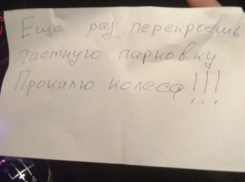 Еще раз перекроешь
частную парковку
Проколю колеса!!!